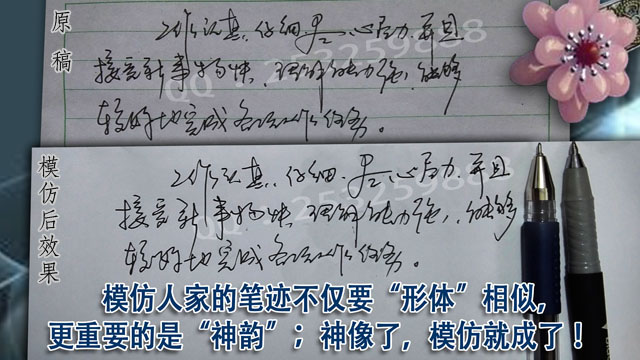 原稿
工作认真、仔细、尽心尽力,并且
接受新事物快,理解能力强,能够
较好地完成各项工作任务。
模仿后效果
工作认真、仔细、尽心尽力,并且
接受新事物快,理解能力强,能够
较好地完成各项工作任务。
模仿人家的笔迹不仅要“形体”相似,
更重要的是“神韵”;神像了,模仿就成了!